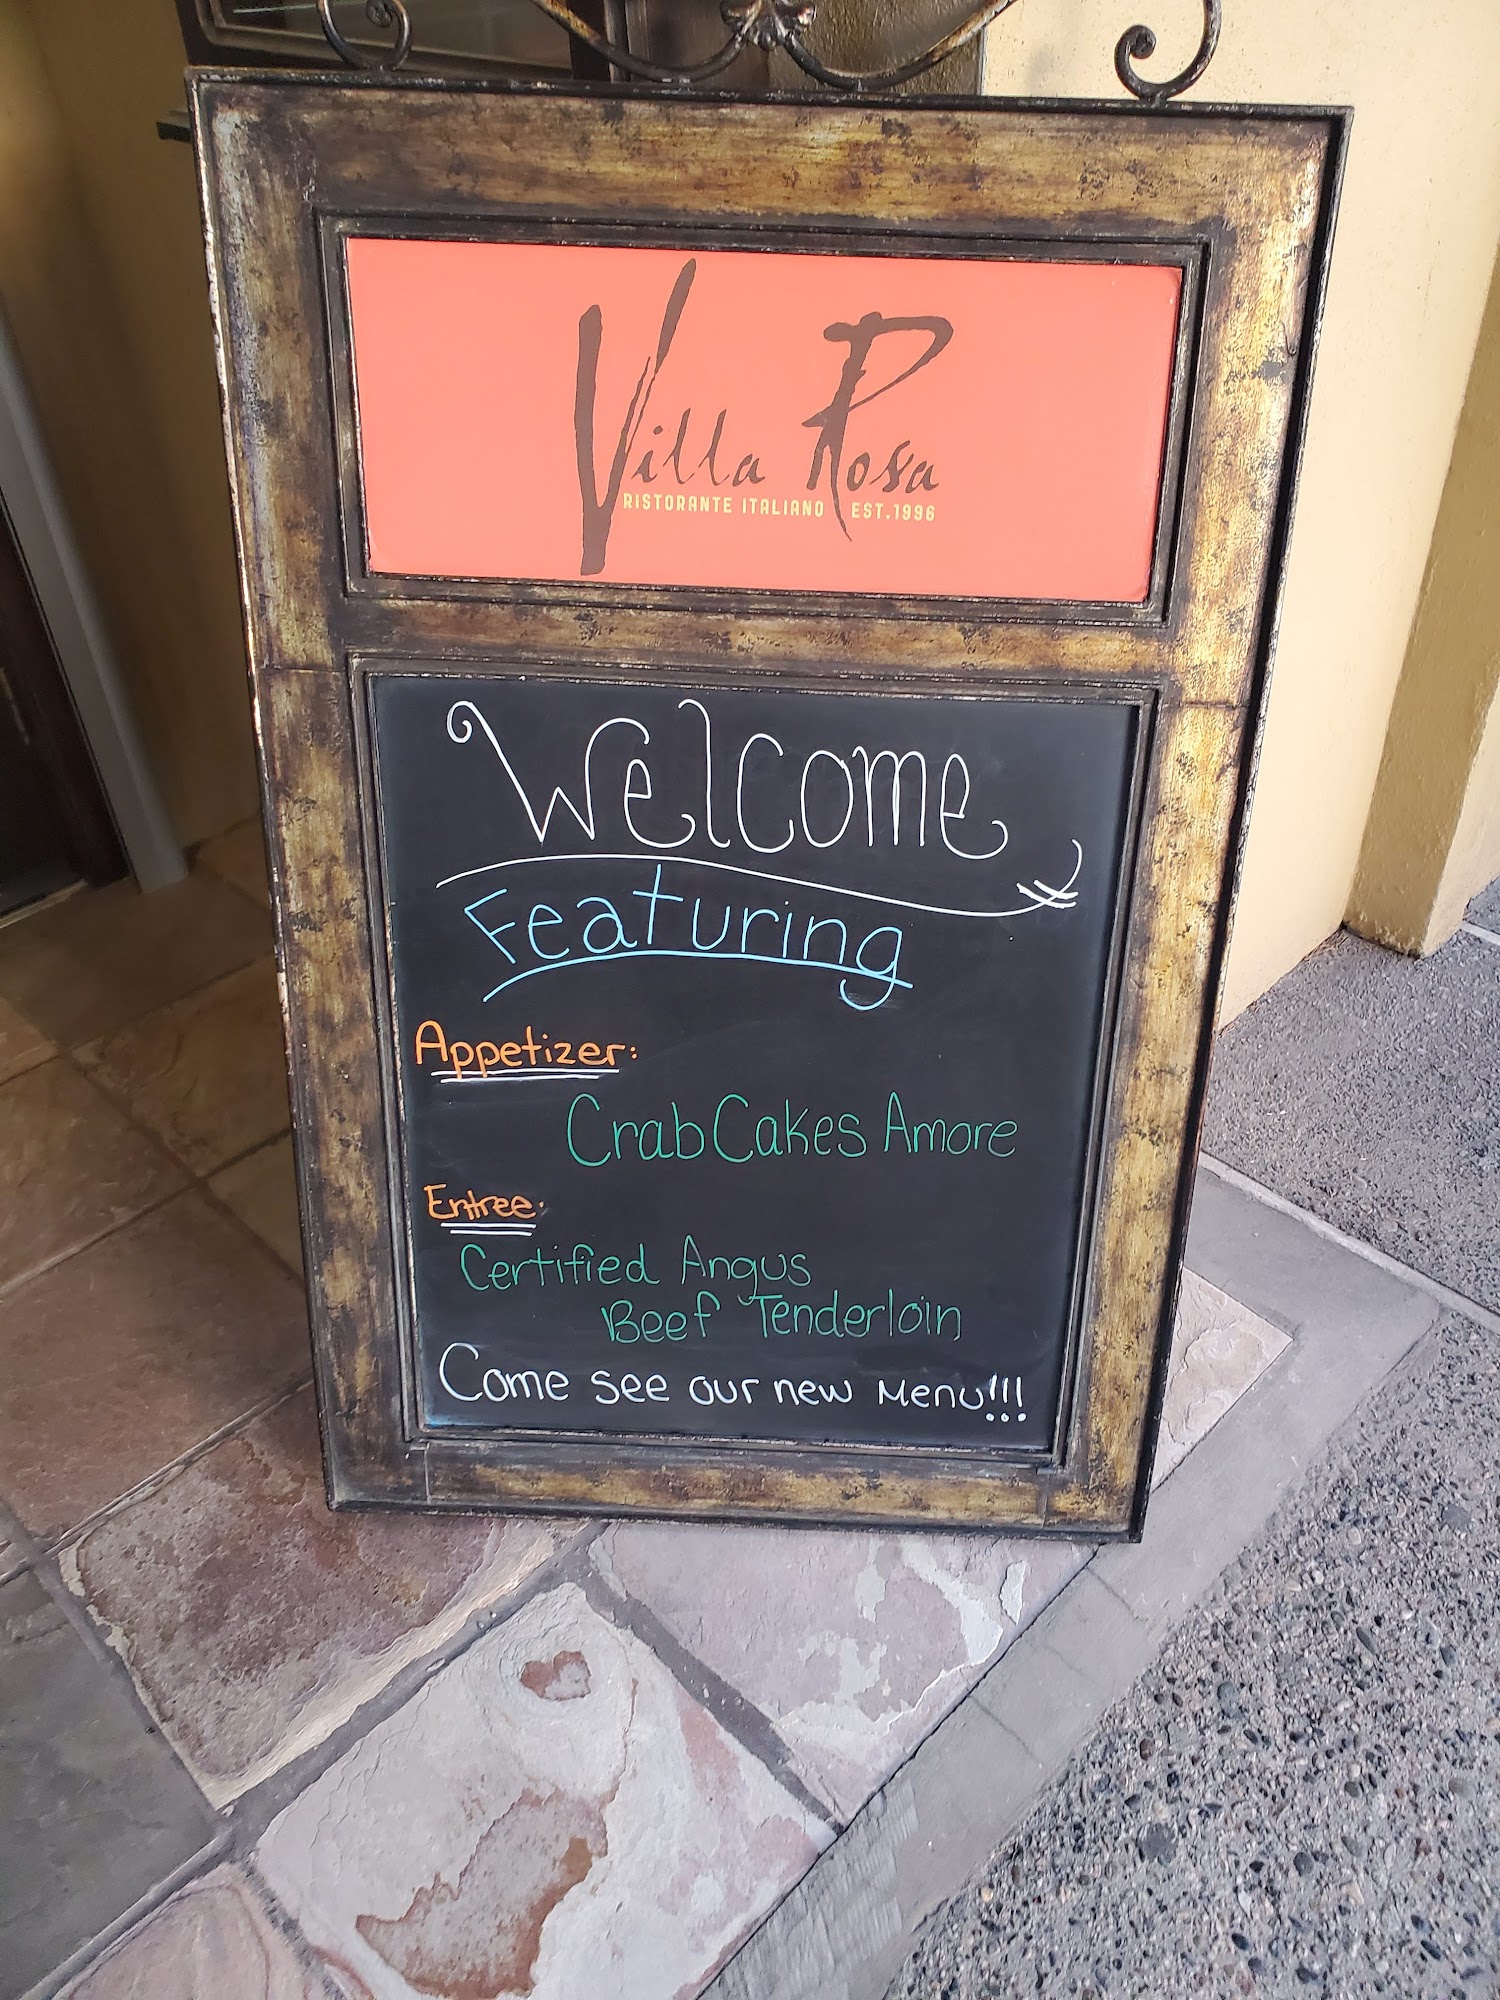 Villa Rosa
RISTORANTE ITALIANO EST.1996
Welcome
Featuring
Appetizer:
Crab Cakes Amore
Entree:
Certified Angus
Beef Tenderloin
Come see our new Menu!!!